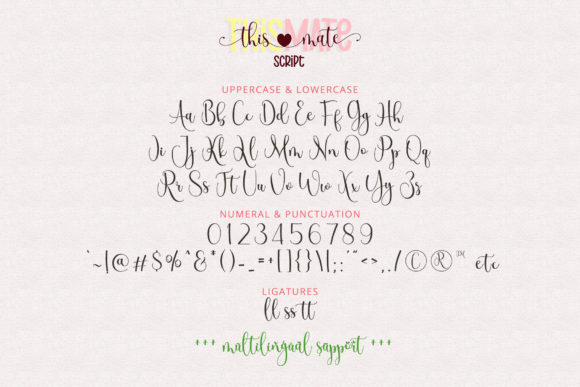 THISMATE
this mate
SCRIPT
UPPERCASE & LOWERCASE
Aa Bb Cc Dd Ee Ff Gg Hh
Ii Jj Kk Ll Mm Nn Oo Pp Qq
Rr Ss Tt Uu Vv Ww Xx Yy Zz
NUMERAL & PUNCTUATION
0123456789
`~|@#$%^&*()-_=+[]{}\|;:'"<>,./©®™ etc
LIGATURES
ll ss tt
+++ multilingual support +++